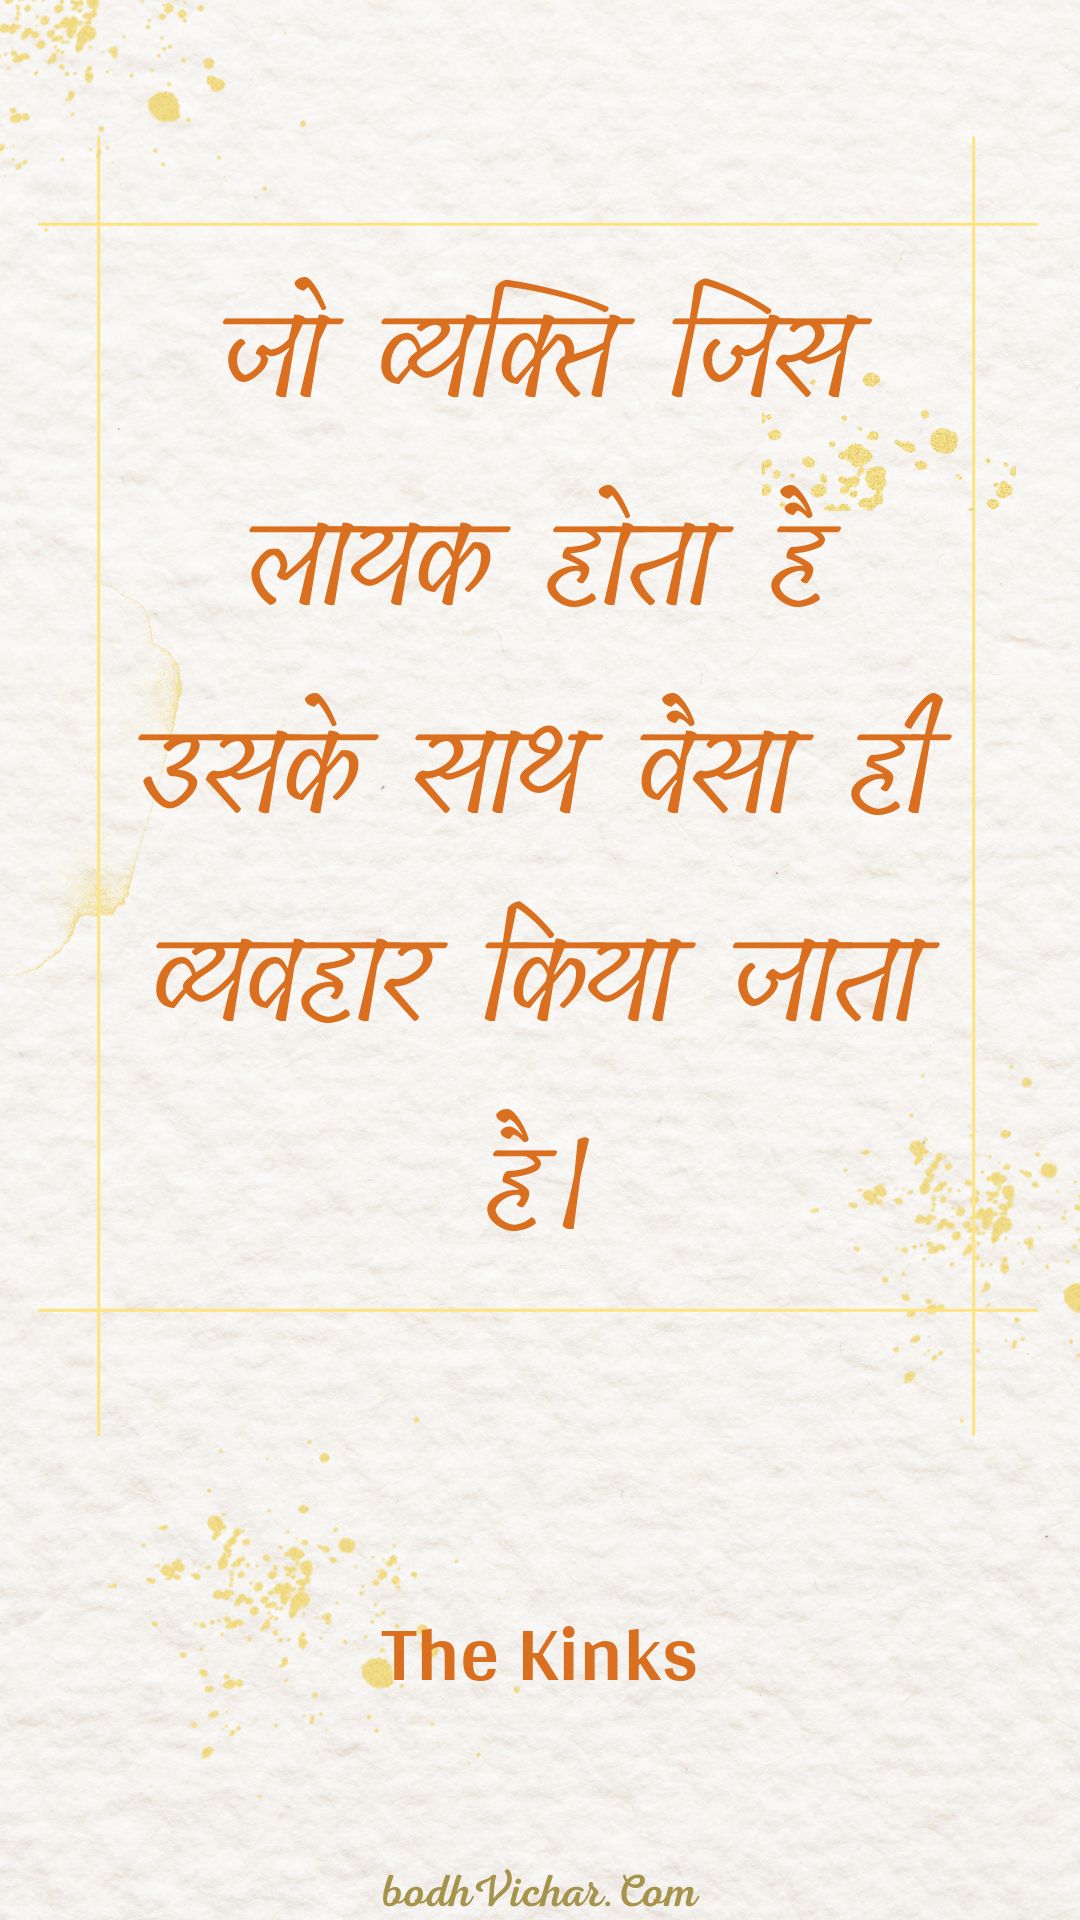 जो व्यक्ति जिस
लायक होता है
उसके साथ वैसा ही
व्यवहार किया जाता
है।
The Kinks
bodhVichar.Com